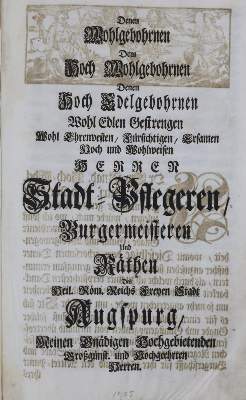 Denen
Wohlgebohrnen
Dem
Hoch Wohlgebohrnen
Denen
Hoch Edelgebohrnen
Wohl Edlen Gestrengen
Wohl Ehrenvesten / Fürsichtigen / Ersamen
Hoch und Wohlweisen
HERREN
Stadt-Pflegeren /
Burgermeisteren
Und
Räthen
Des
Heil. Röm. Reichs Freyen Stadt
Augspurg,
Meinen Gnädigen Hochgebietenden
Großgünst. und Hochgeehrten
Herren.